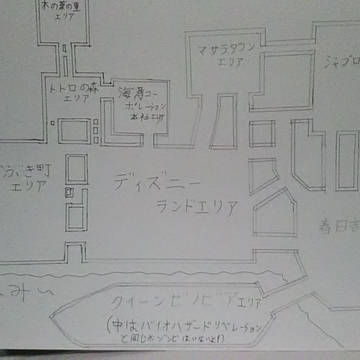 木の葉の里
エリア
マサラタウン
エリア
トトロの森
エリア
海馬コー
ポレーション
本社エリア
ディズニー
ランドエリア
ぶき町
エリア
春日
クイーンゼノビアエリア
(中はバイオハザードリベレーション
と同じ
ゾンビはいないよ!)